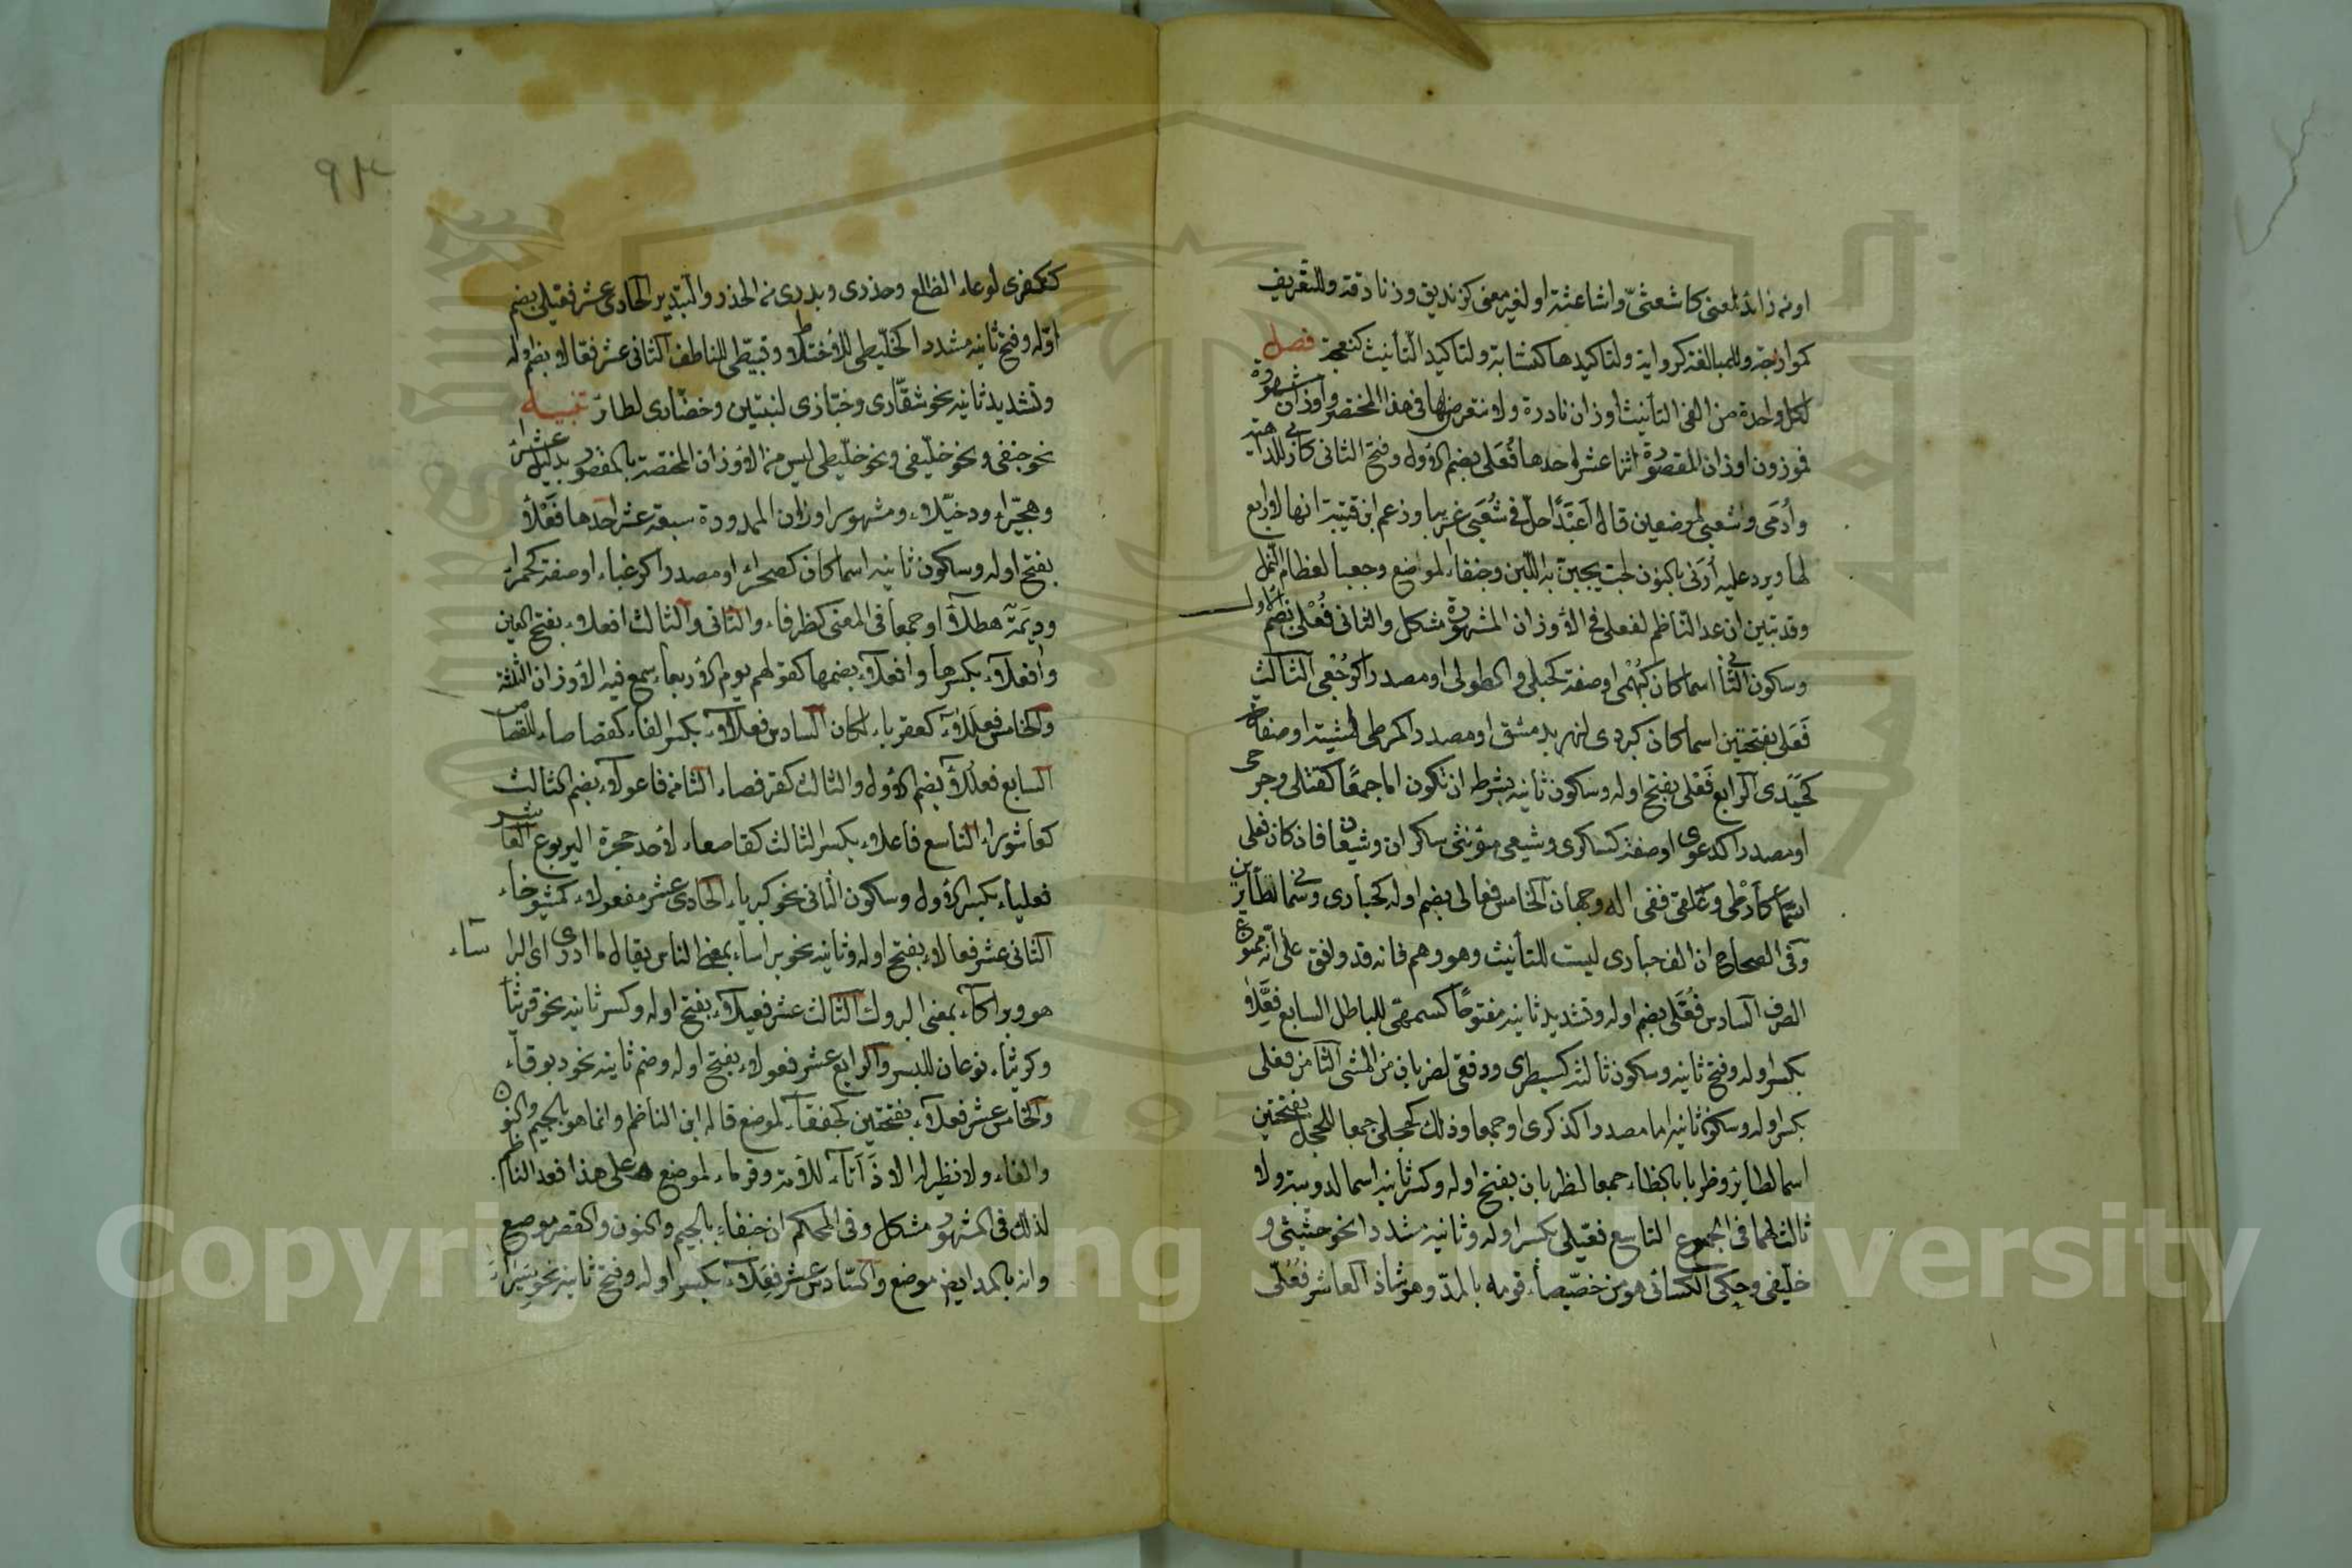 او من زائد لمعنى كاشعثى واشاعثة او لغير معنى كزنديق وزنادقة وللتعريف
كموازجة وللمبالغة كرواية ولتاكيدها كنسابة ولتاكيد التأنيث كنعجة فصل
لكل واحدة من الفى التأنيث اوزان نادرة ولا نتعرض لها فى هذا المختصر واوزان مشهورة
فموزون اوزان المقصورة اثنا عشر احدها فُعَلى بضم الاول وفتح الثانى كأربى للداهية
وأُدَمَى وشعبى لموضعين قال أعبدًا حل فى شُعَبى غريبا وزعم ابن قتيبة انها لا رابع
لها ويرد عليه أرَنى بالنون لحب يجبن به اللبن وجنفا لموضع وجعبا لعظام النمل
وقد تبين ان عد الناظم لفعلى فى الاوزان المشهورة مشكل والثانى فُعْلى بضم الاول
وسكون الثانى اسما كان كبُهْمى او صفة كحبلى والطولى او مصدرا كرُجْعى الثالث
فَعَلى بفتحتين اسما كان كبردى لنهر بدمشق او مصدرا كمرطى لمشية او صفة
كحَيَدى الرابع فَعْلى بفتح اوله وسكون ثانيه بشرط ان تكون اما جمعًا كقتلى وجرحى
او مصدرا كدعوى او صفة كسكرى وشبعى مؤنثى سكران وشبعان فان كان فعلى
اسمًا كأرْطى وعَلْقى ففى الفه وجهان الخامس فعالى بضم اوله كحبارى وسمانى لطايرين
وفى الصحاح ان الف حبارى ليست للتأنيث وهو وهم فانه قد وافق على انه ممنوع
الصرف السادس فُعَّلى بضم اوله وتشديد ثانيه مفتوحًا كسمهى للباطل السابع فِعَلى
بكسر اوله وفتح ثانيه وسكون ثالثه كسبطرى ودفقى لضربان من المشى الثامن فعلى
بكسر اوله وسكون ثانيه اما مصدرا كذكرى او جمعا وذلك كحجلى جمعا للحجل بفتحتين
اسما لطاير وظربى بالظاء جمعا لظربان بفتح اوله وكسر ثانيه اسما لدويبة ولا
ثالث لهما فى الجموع التاسع فعيلى بكسر اوله وثانيه مشددا نحو حثيثى و
خليفى وحكى الكسائى هو من خصيصاء قومه بالمد وهو شاذ العاشر فُعُلّى
٩٣
ككفرى لوعاء الطلع وحذرى وبذرى من الحذر والتبذير الحادى عشر فعيلى بضم
اوله وفتح ثانيه مشددا كخليطى للاختلاط وقبيطى للناطف الثانى عشر فعالى بضم اوله
وتشديد ثانيه نحو شقارى وخبازى لنبتين وخضارى لطائر تنبيه
نحو جنفى ونحو خليفى ونحو خليطى ليس من الاوزان المختصة بالمقصور بدليل عشراء
وهجيراء ودخيلاء ومشهور اوزان الممدودة سبعة عشر احدها فَعْلاء
بفتح اوله وسكون ثانيه اسما كان كصحراء او مصدرا كرغباء او صفة كحمراء
وديمَة هطلاء او جمعا فى المعنى كطرفاء والثانى والثالث افعلاء بفتح العين
وأفعلاء بكسرها وافعلاء بضمها كقولهم يوم الاربعاء سمع فيه الاوزان الثلثة
والخامس فعلَلاء كعقرباء لمكان السادس فعلالاء بكسر الفاء كقصاصاء للقصاص
السابع فعللاء بضم الاول والثالث كقرفصاء الثامن فاعولاء بضم الثالث
كعاشوراء التاسع فاعلاء بكسر الثالث كقاصعاء لاحد جحرة اليربوع العاشر
فعلياء بكسر الاول وسكون الثانى نحو كبرياء الحادى عشر مفعولاء كمشيوخاء
الثانى عشر فعالاء بفتح اوله وثانيه نحو براساء بمعنى الناس يقال ما ادرى اى البراساء
هو وبراكاء بمعنى البروك الثالث عشر فعيلاء بفتح اوله وكسر ثانيه نحو قريثاء
وكريثاء نوعان للبسر والرابع عشر فعولاء بفتح اوله وضم ثانيه نحو دبوقاء
والخامس عشر فعلاء بفتحتين كجفقاء لموضع قاله ابن الناظم وانما هو بالجيم والنون
والفاء ولا نظير له الا دَأَثاء للأمة وقرماء لموضع على هذا فعد الناظم
لذلك فى المشهور مشكل وفى المحكم ان جنفاء بالجيم والنون والقصر موضع
وانه بالمد ايضا موضع والسادس عشر فِعَلاء بكسر اوله وفتح ثانيه نحو سيراء
Copyright © King Saud University